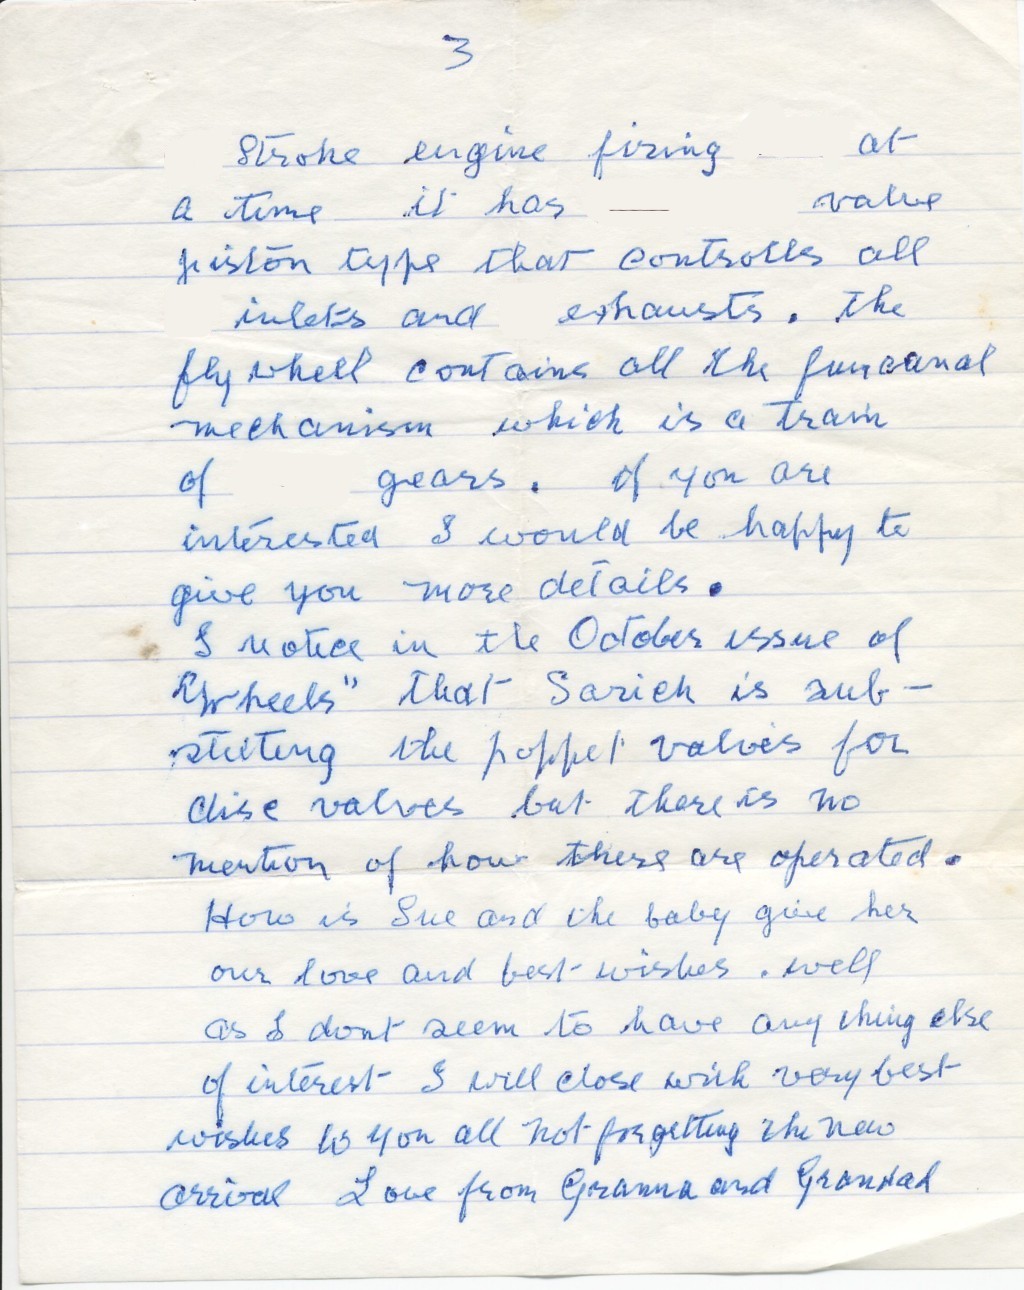 3
Stroke engine firing at
a time it has valve
piston type that controlls all
inlets and exhausts. the
fly whell contains all the
mechanism which is a train
of gears. If you are
interested I would be happy to
give you more details.
I notice in the October issue of
"Wheels" that Sarich is sub-
stuting the poppet valves for
disc valves but there is no
mention of how these are operated.
How is Sue and the baby give her
our love and best wishes. well
as I dont seem to have any thing else
of interest I will close with very best
wishes to you all not forgetting the new
arrival Love from Granna and Grandad